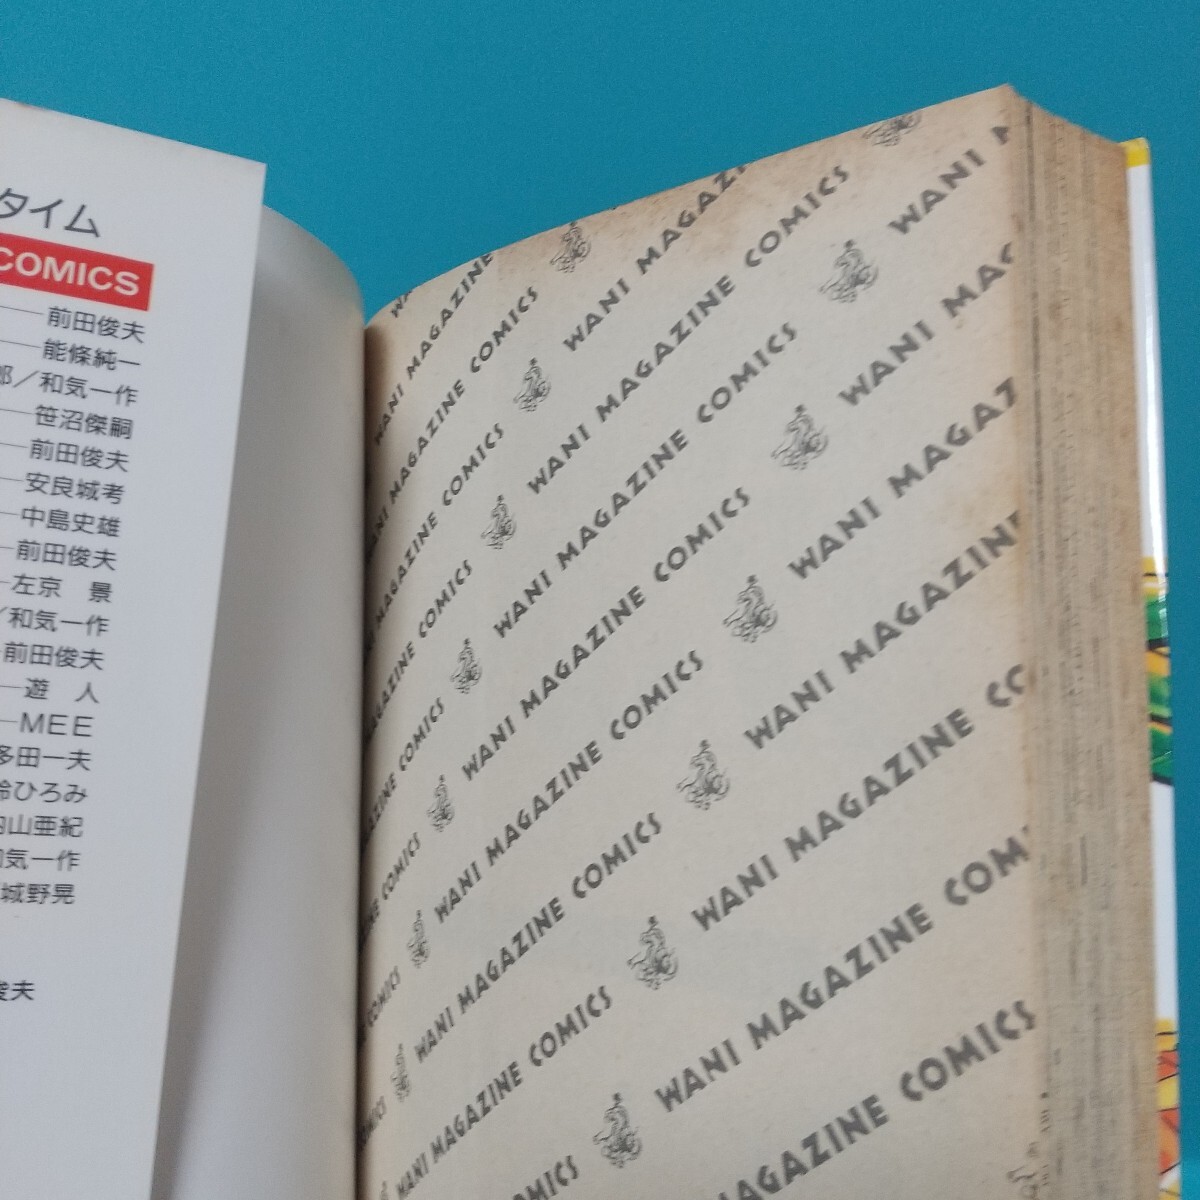 タイム
COMICS
前田俊夫
能條純一
郎／和気一作
笹沼傑嗣
前田俊夫
安良城考
中島史雄
前田俊夫
左京 景
／和気一作
前田俊夫
遊 人
MEE
多田一夫
ひろみ
山亜紀
気一作
城野晃
俊夫
WANI MAGAZINE
WANI MAGAZINE COMICS
WANI MAGAZINE COMICS
MAGAZINE COMICS
WANI MAGAZINE COMICS
WANI MAGAZINE COMICS
WANI MAGAZINE COMICS
WANI MAGAZINE COMICS
WANI MAGAZINE COMICS
WANI MAGAZINE COMICS
WANI MAGAZINE COMICS